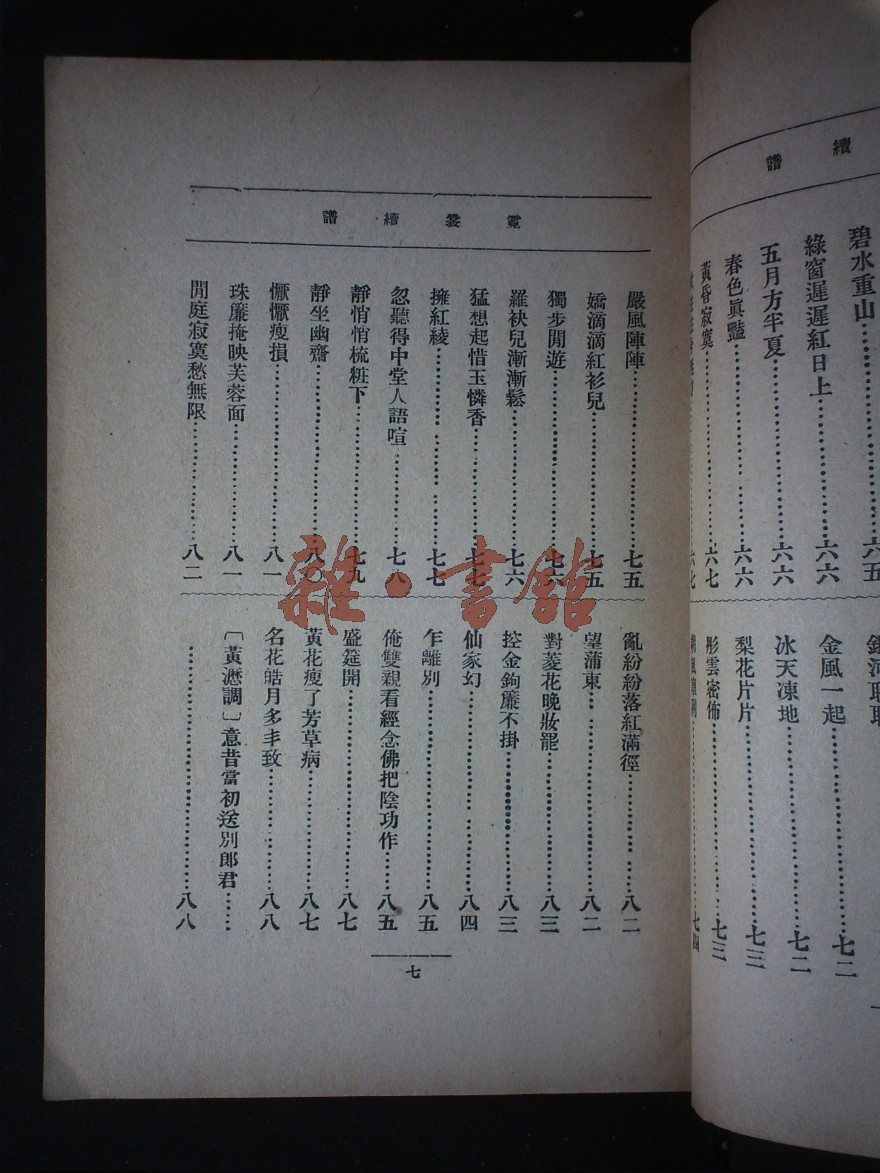 續譜
碧水重山……六五
綠窗遲遲紅日上……六六
五月方半夏……六六
春色眞豔……六六
黃昏寂寞……六七
六七
金風一起……七二
冰天凍地……七二
梨花片片……七三
彤雲密佈……七三
七四
霓裳續譜
嚴風陣陣……七五
嬌滴滴紅衫兒……七五
獨步閒遊……七六
羅袂兒漸漸鬆……七六
猛想起惜玉憐香……七七
擁紅綾……七七
忽聽得中堂人語喧……七八
靜悄悄梳粧下……七九
靜坐幽齋……八〇
懨懨瘦損……八一
珠簾掩映芙蓉面……八一
閒庭寂寞愁無限……八二
亂紛紛落紅滿徑……八二
望蒲東……八二
對菱花晚妝罷……八三
控金鉤簾不掛……八三
仙家幻……八四
乍離別……八五
俺雙親看經念佛把陰功作……八五
盛筵開……八七
黃花瘦了芳草病……八七
名花皓月多丰致……八八
〔黃瀝調〕意昔當初送別郎君……
……八八
七
雜·書館